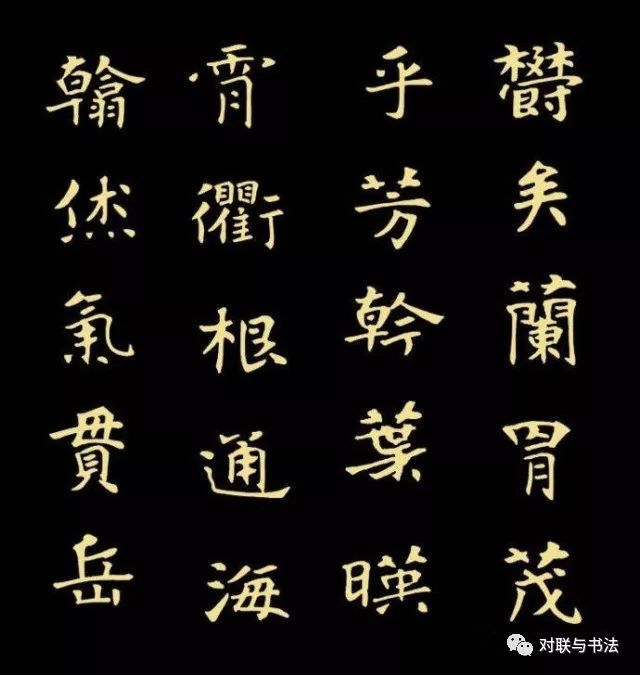 欝矣蘭胄茂
乎芳幹葉暎
霄衢根通海
翰烋氣貫岳
对联与书法